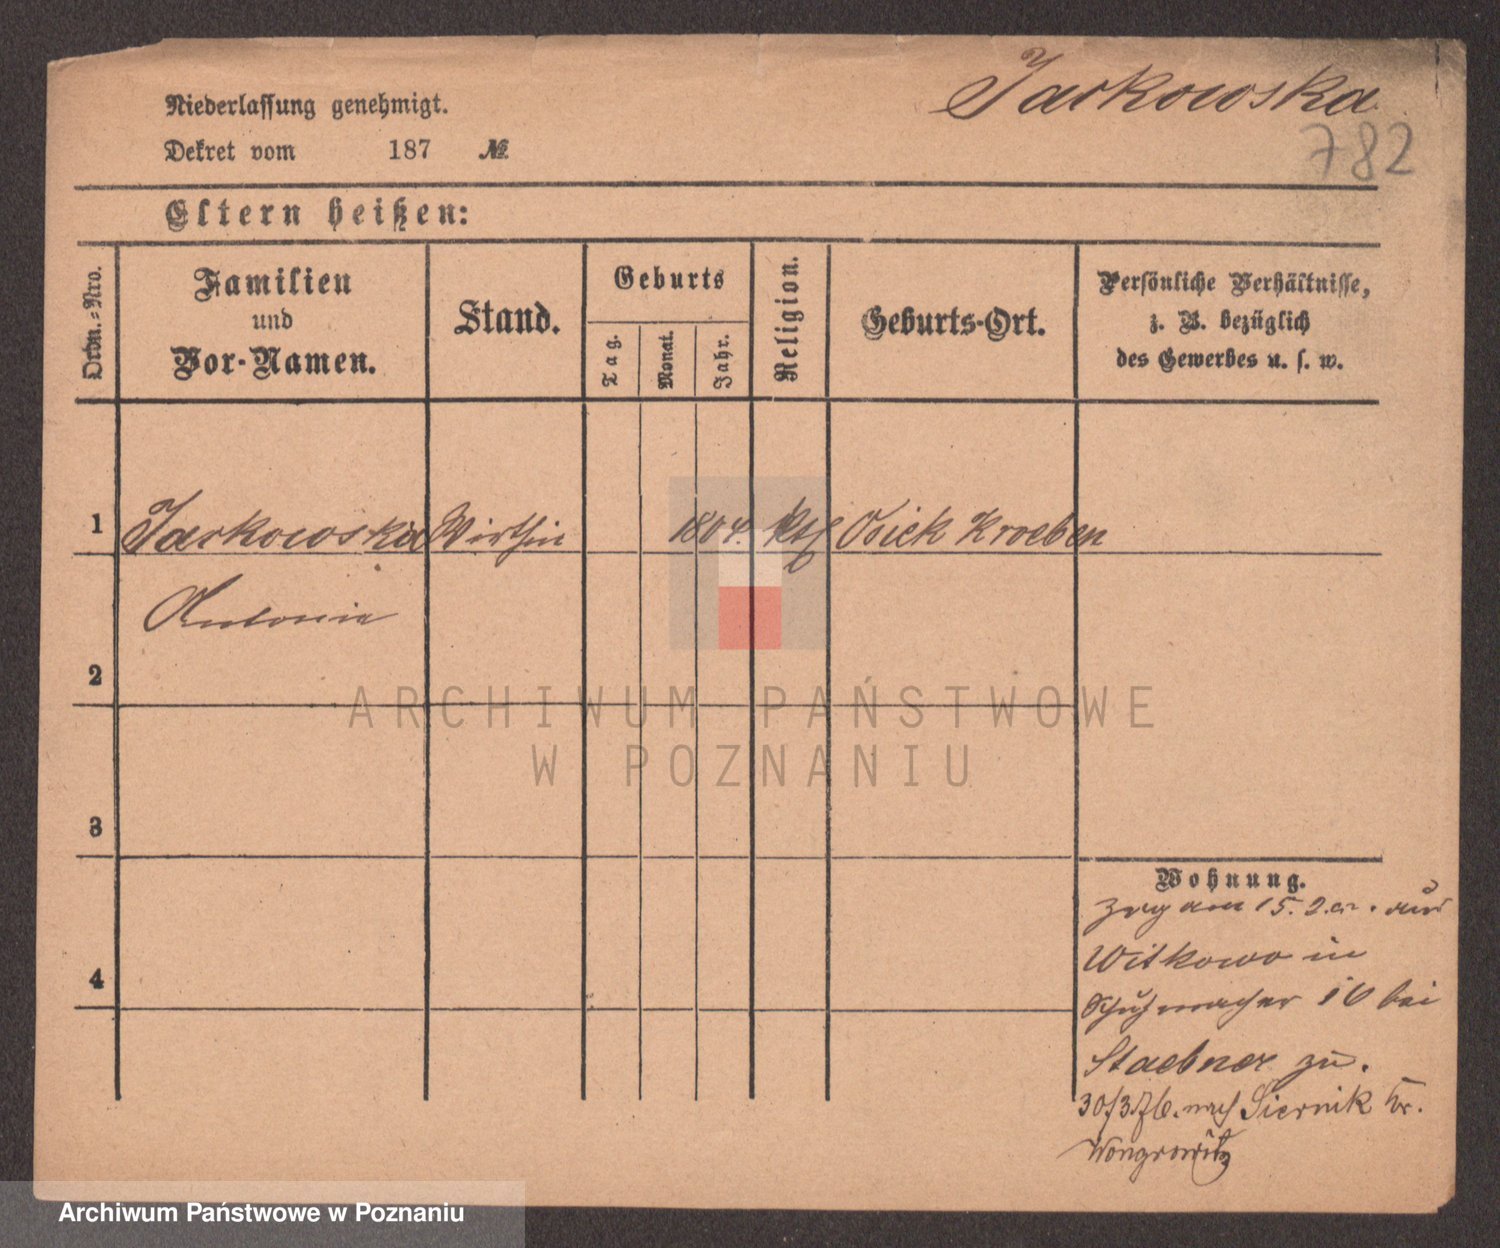 Jackowska
782
Niederlassung genehmigt.
Dekret vom 187 №
Eltern heißen:
Ordn.-Nro.
Familien und Vor-Namen.
Stand.
Geburts
Tag.
Monat.
Jahr.
Religion.
Geburts-Ort.
Persönliche Verhältnisse,
z. B. bezüglich
des Gewerbes u. s. w.
1 Jackowska Wirthin 1804. kth Osiek Kroeben
Antonie
2
ARCHIWUM PAŃSTWOWE
W POZNANIU
3
4
Wohnung.
Zog am 15. 2. cr. aus
Witkowo in
Schuhmacher 16 bei
Staebner zu.
30/3 76. nach Siernik Kr.
Wongrowitz
Archiwum Państwowe w Poznaniu